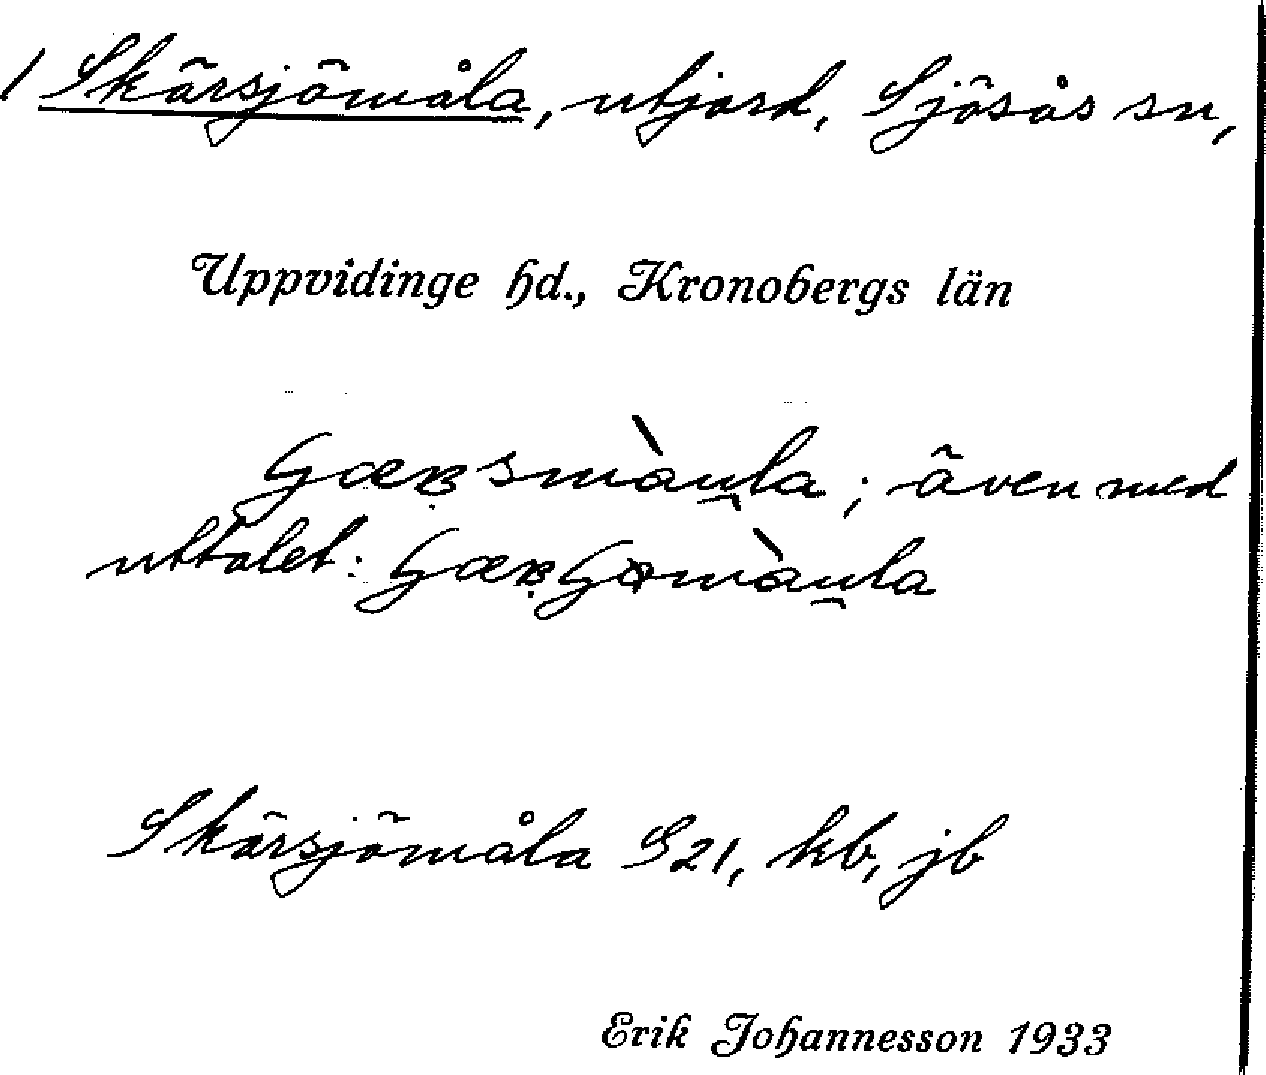 1 Skärsjömåla, utjord, Sjösås sn,
Uppvidinge hd., Kronobergs län
även med
uttalet:
Skärsjömåla S21, kb, jb
Erik Johannesson 1933